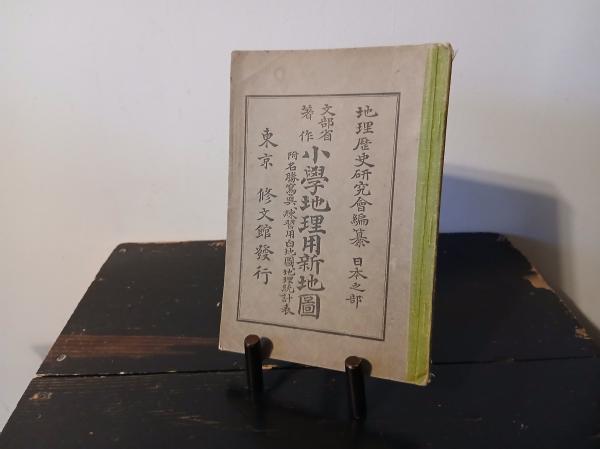 地理歷史研究會編纂 日本之部
文部省
著作
小學地理用新地圖
附名勝寫眞、練習用白地圖、地理統計表
東京 修文館發行